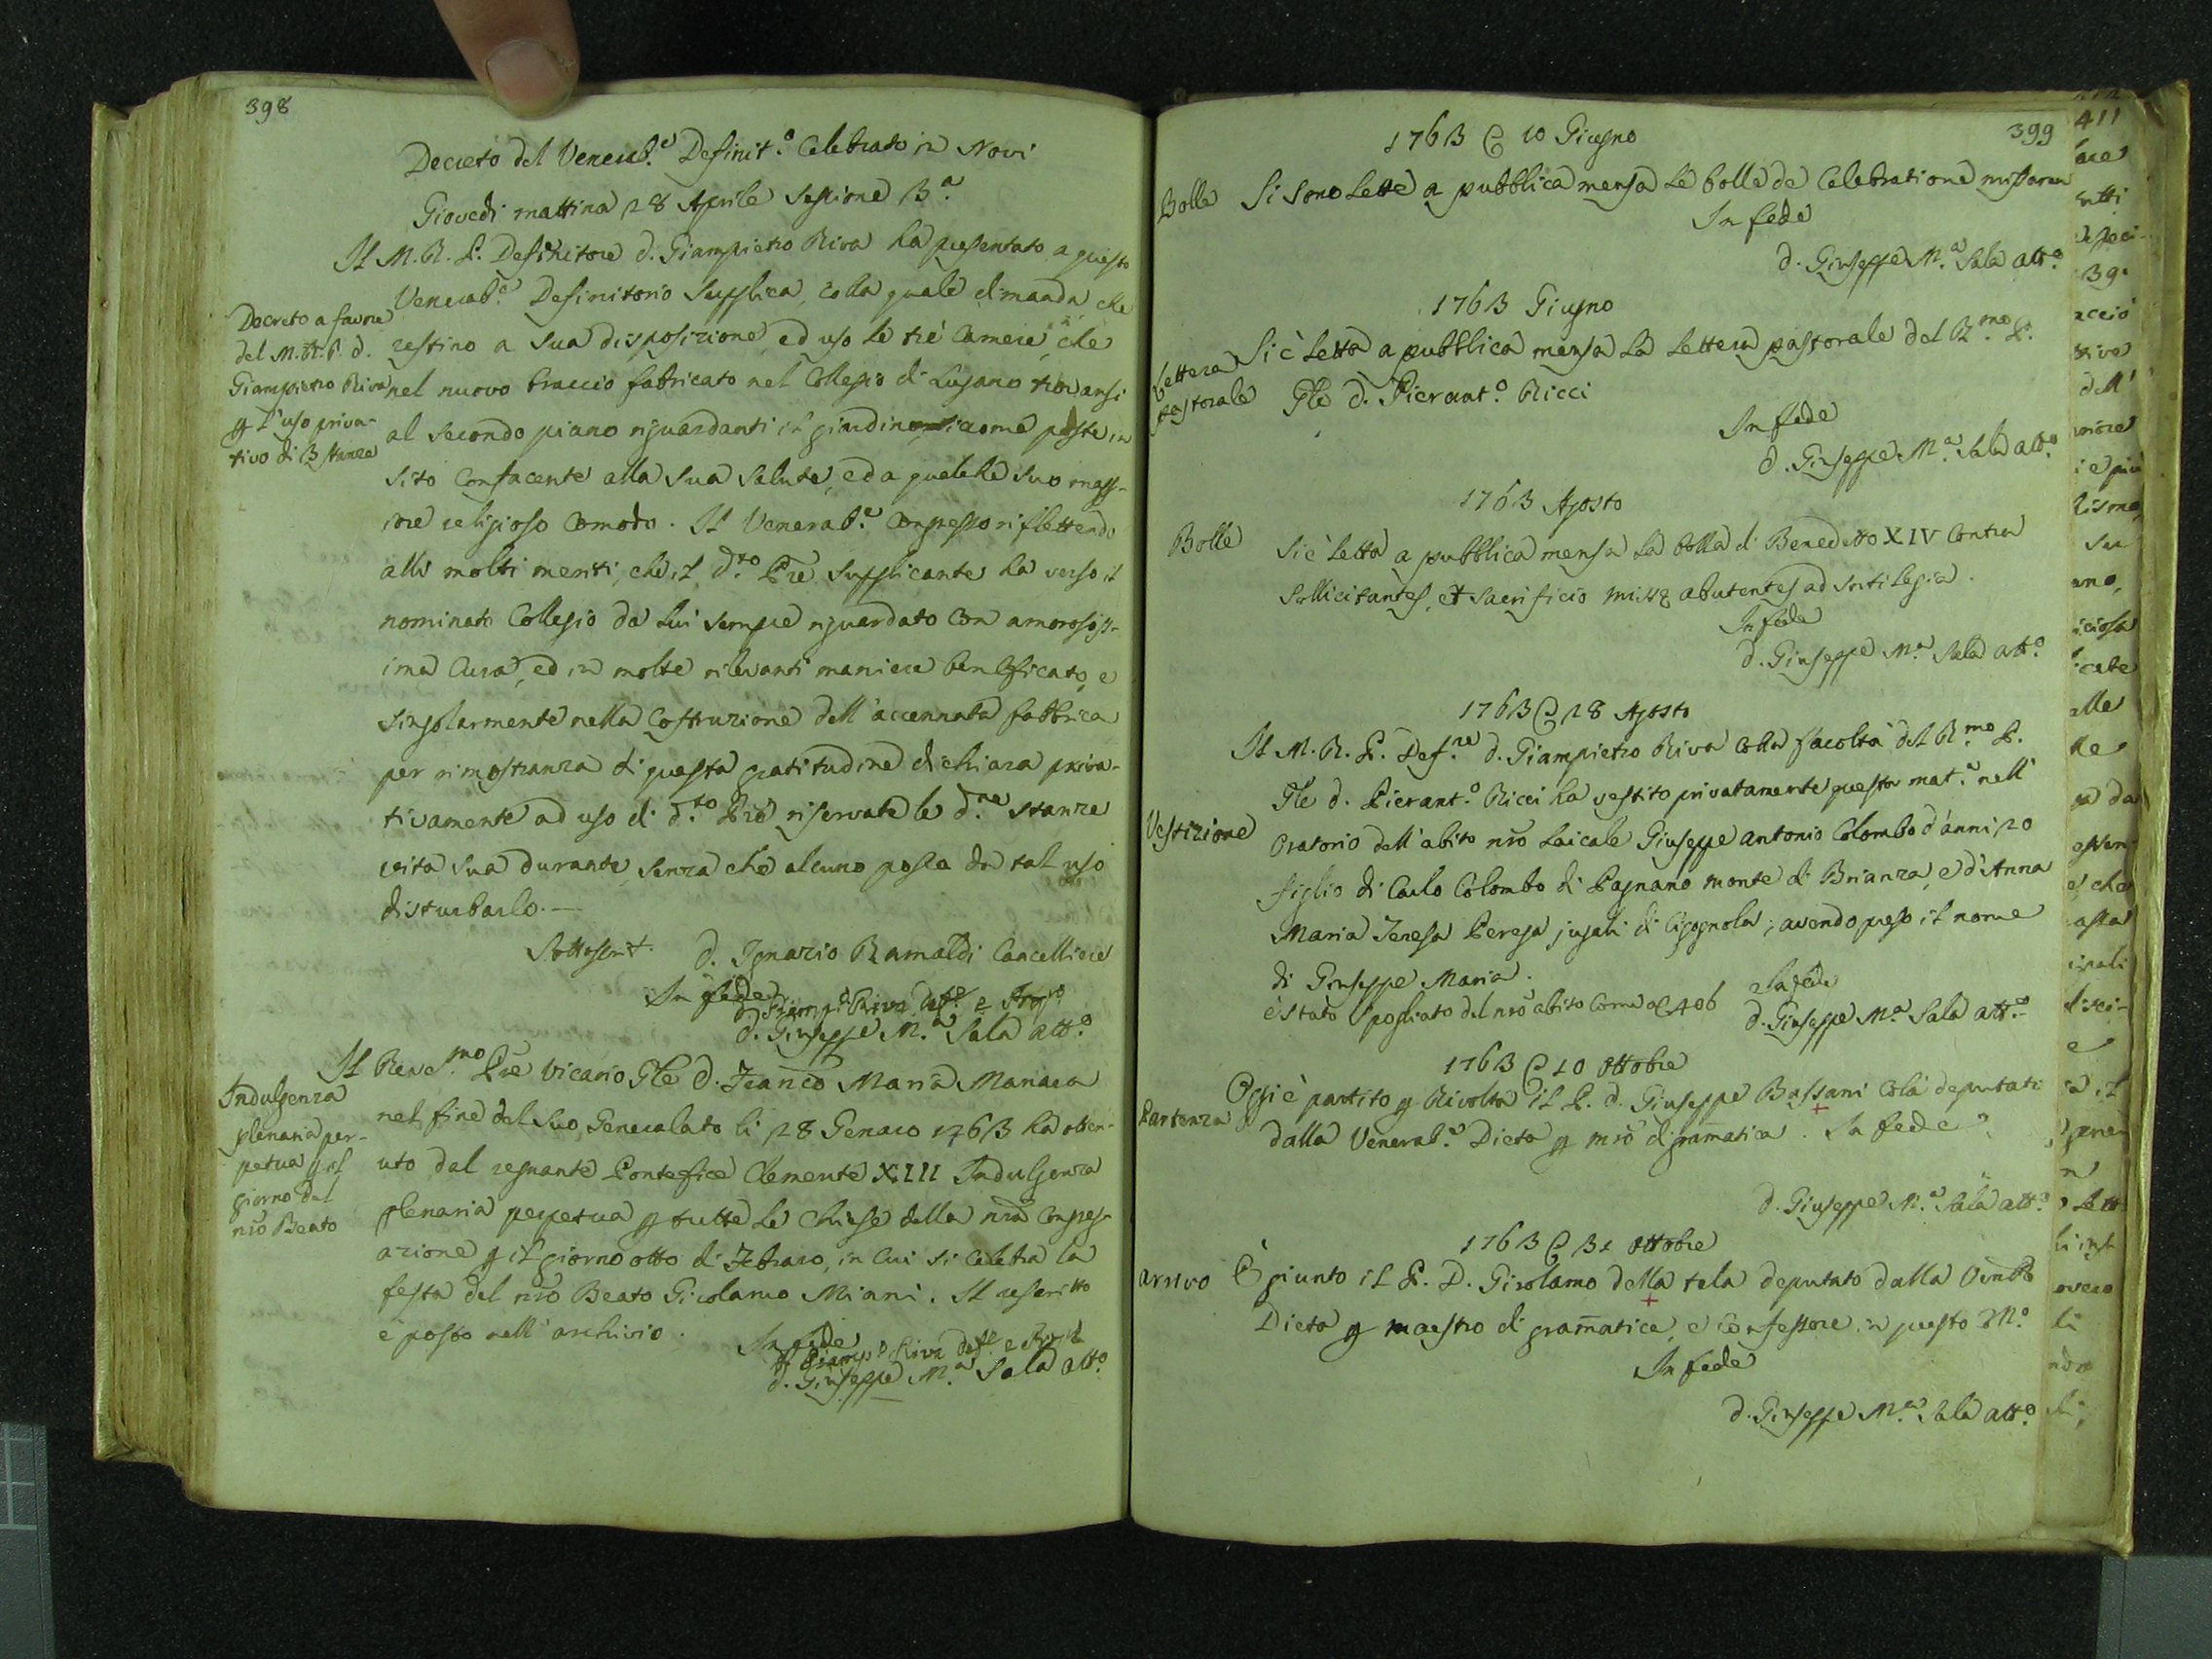 398
Decreto del Venerab.e Definit.o Celebrato in Novi
Giovedi mattina 28 Aprile Sessione 3.a
Il M. R. P. Definitore d. Giampietro Riva ha presentato a questo
Venerab.e Definitorio Supplica, colla quale dimanda che
restino a sua disposizione, ed uso le trè Camere, che
nel nuovo braccio fabricato nel Collegio di Lugano trovansi
al secondo piano riguardanti il giardino siccome poste in
sito confacente alla sua salute, ed a qualche suo magg-
iore religioso comodo. Il Venerab.e Consesso riflettendo
alli molti meriti, che il d.to Pre Supplicante ha verso il
nominato Collegio da lui sempre riguardato con amorosiss-
ima Cura, ed in molte rilevanti maniere beneficato, e
singolarmente nella Costruzione dell'accennata fabbrica
per rimostranza di questa gratitudine dichiara priva-
tivamente ad uso di d.to Pre riservate le d.ne stanze
vita sua durante, senza che alcuno possa da tal uso
disturbarlo.—
Sottoscrit. D. Ignazio Ramaldi Cancelliere
In fede
d. Giuseppe M.a Sala att.o
Decreto a favore
del M. R. P. d.
Giampietro Riva
p l'uso priva-
tivo di 3 stanze
Il Rev.mo Pre Vicario Gle D. Franco Maria Manara
nel fine del suo Generalato li 28 Genaro 1763 ha otten-
uto dal regnante Pontefice Clemente XIII Indulgenza
plenaria perpetua p tutte le Chiese della nra Congreg-
azione p il giorno otto di Febraro, in cui si celebra la
festa del nro Beato Girolamo Miani. Il rescritto
è posto nell'archivio.
In fede
d. Giuseppe M.a Sala att.o
Indulgenza
plenaria per-
petua p il
giorno del
nro Beato
399
1763 @ 10 Giugno
Bolle Si sono lette a pubblica mensa le bolle de Celebratione missarum
In fede
d. Giuseppe M.a Sala att.o
1763 Giugno
Lettera Si è letta a pubblica mensa la lettera pastorale del R.mo P.
pastorale Gle d. Pierant.o Ricci
In fede
d. Giuseppe M.a Sala att.o
1763 Agosto
Bolle Si è letta a pubblica mensa la bolla di Benedetto XIV contra
sollicitantes, et sacrificio missæ abutentes ad sortilegia.
In fede
d. Giuseppe M.a Sala att.o
1763 @ 28 Agosto
Il M. R. P. Def.re d. Giampietro Riva colla facoltà del R.mo P.
Gle d. Pierant.o Ricci ha vestito privatamente questa mat.a nell'
Vestizione Oratorio dell'abito nro laicale Giuseppe Antonio Colombo d'anni 20
figlio di Carlo Colombo di Pagnano monte di Brianza, e d'Anna
Maria Teresa Perega jugali di Cigognola; avendo preso il nome
di Giuseppe Maria.
In fede
è stato spogliato del nro abito come al 406
d. Giuseppe M.a Sala att.o
1763 @ 10 Ottobre
Oggi è partito p Rivolta il P. d. Giuseppe Bassani colà deputato
Partenza dalla Venerab.e Dieta p mro di gramatica. In fede
d. Giuseppe M.a Sala att.o
1763 @ 31 Ottobre
Arrivo È giunto il P. D. Girolamo della tela deputato dalla
Dieta p maestro di gramatica, e Confessore in questo
In fede
d. Giuseppe M.a Sala att.o
411